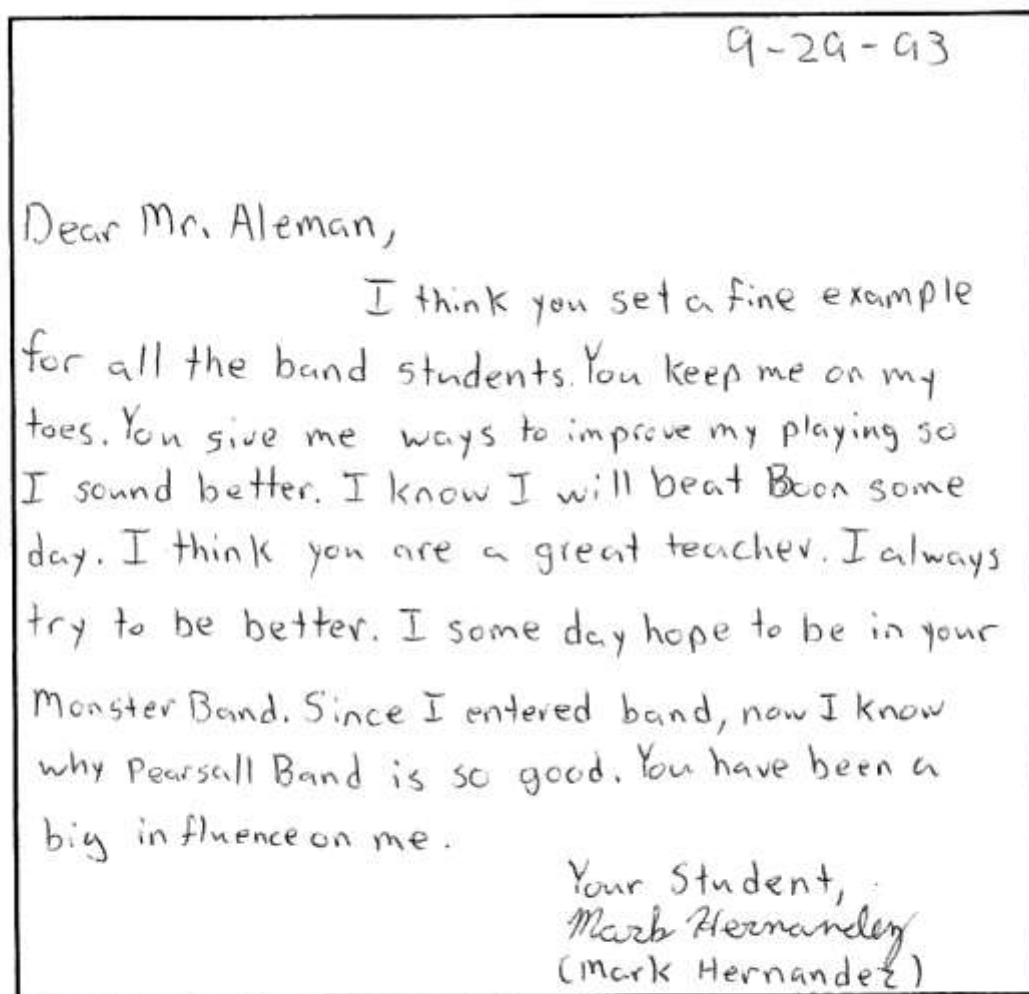 9-29-93
Dear Mr. Aleman,
I think you set a fine example
for all the band students. You keep me on my
toes. You give me ways to improve my playing so
I sound better. I know I will beat Boon some
day. I think you are a great teacher. I always
try to be better. I some day hope to be in your
Monster Band. Since I entered band, now I know
why Pearsall Band is so good. You have been a
big influence on me.
Your Student,
Mark Hernandez
(Mark Hernandez)